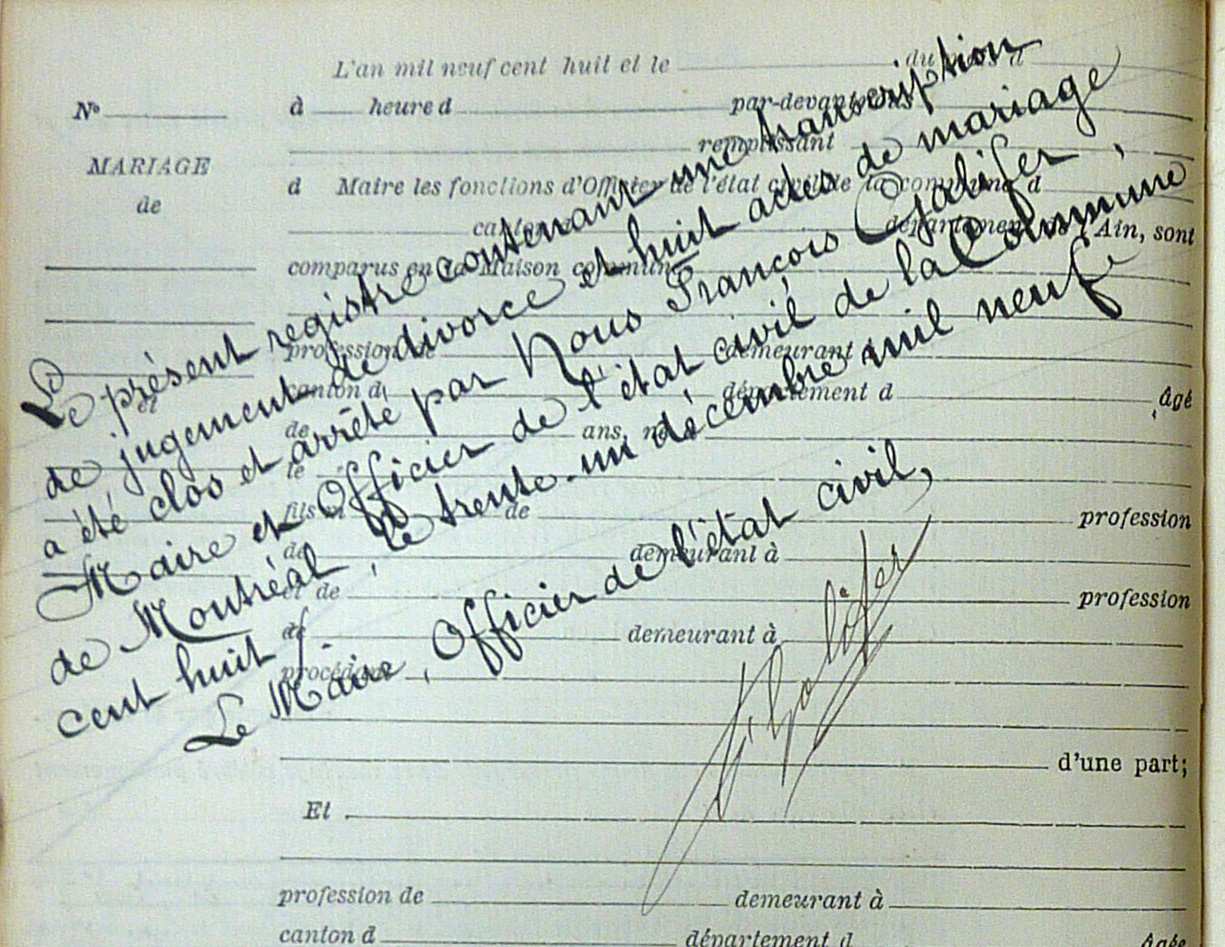 Le présent registre contenant une transcription
de jugement de divorce et huit actes de mariage
a été clos et arrêté par Nous François Galifer,
Maire et Officier de l'état civil de la Commune
de Montréal, le trente-un décembre mil neuf
cent huit
Le Maire, Officier de l'état civil,
F. Galifer
L'an mil neuf cent huit et le du d
N° à heure d par-devant
MARIAGE remplissant
de d Maire les fonctions d'Officier de l'état civil de la commune d
canton département de l'Ain, sont
comparus en la Maison commune
profession de demeurant
et canton d département d âgé
de ans, né
le
fils de
profession
de demeurant à
et de profession
de demeurant à
procédant
d'une part;
Et
profession de demeurant à
canton d département d âgée